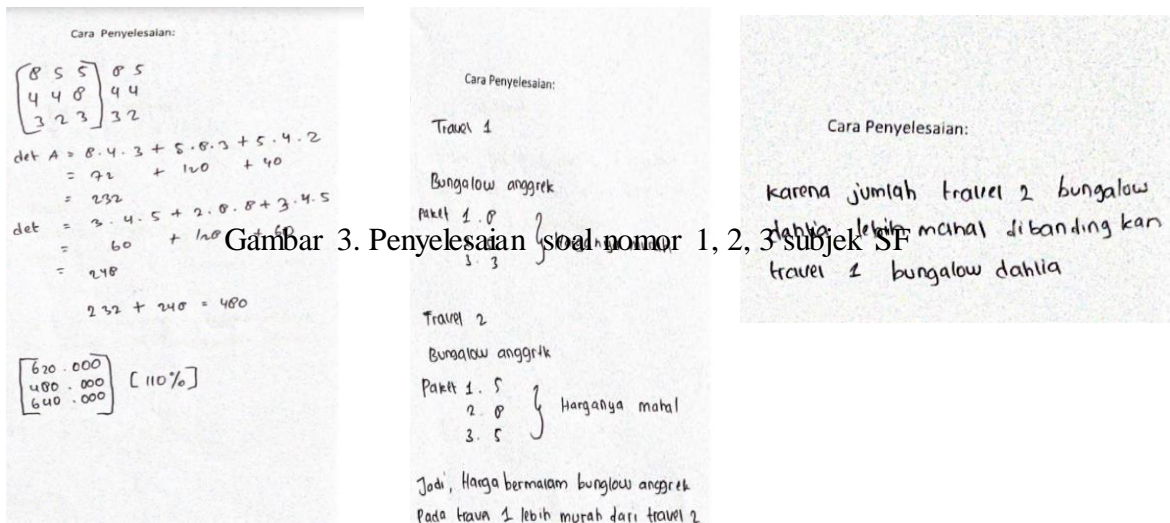 Cara Penyelesaian:
8 5 5 8 5
4 4 8 4 4
3 2 3 3 2
det A = 8.4.3 + 5.8.3 + 5.4.2
= 72 + 120 + 40
= 232
det = 3.4.5 + 2.8.8 + 3.4.5
= 60 + 128 + 60
= 248
232 + 248 = 480
620.000
480.000 [110%]
640.000
Cara Penyelesaian:
Travel 1
Bungalow anggrek
Paket 1. 8
3. 3
Travel 2
Bungalow anggrek
Paket 1. 5
2. 8 Harganya mahal
3. 5
Jadi, Harga bermalam bunglow anggrek
Pada travel 1 lebih murah dari travel 2
Cara Penyelesaian:
Karena jumlah travel 2 bungalow
dahlia lebih mahal dibanding kan
travel 1 bungalow dahlia
Gambar 3. Penyelesaian soal nomor 1, 2, 3 subjek SF